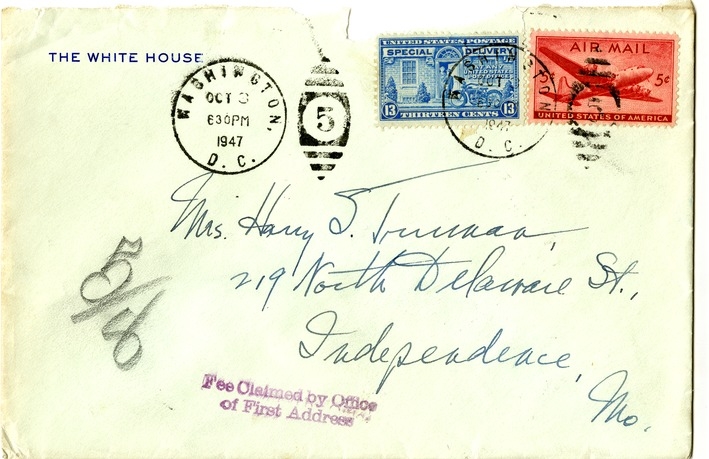 THE WHITE HOUSE
WASHINGTON,
OCT 3
630PM
1947
D. C.
5
UNITED STATES POSTAGE
SPECIAL DELIVERY
13 THIRTEEN CENTS 13
WASHINGTON
OCT
1947
D. C.
AIR MAIL
5¢
UNITED STATES OF AMERICA
Mrs. Harry S. Truman,
219 North Delaware St.,
Independence,
Mo.
Fee Claimed by Office
of First Address